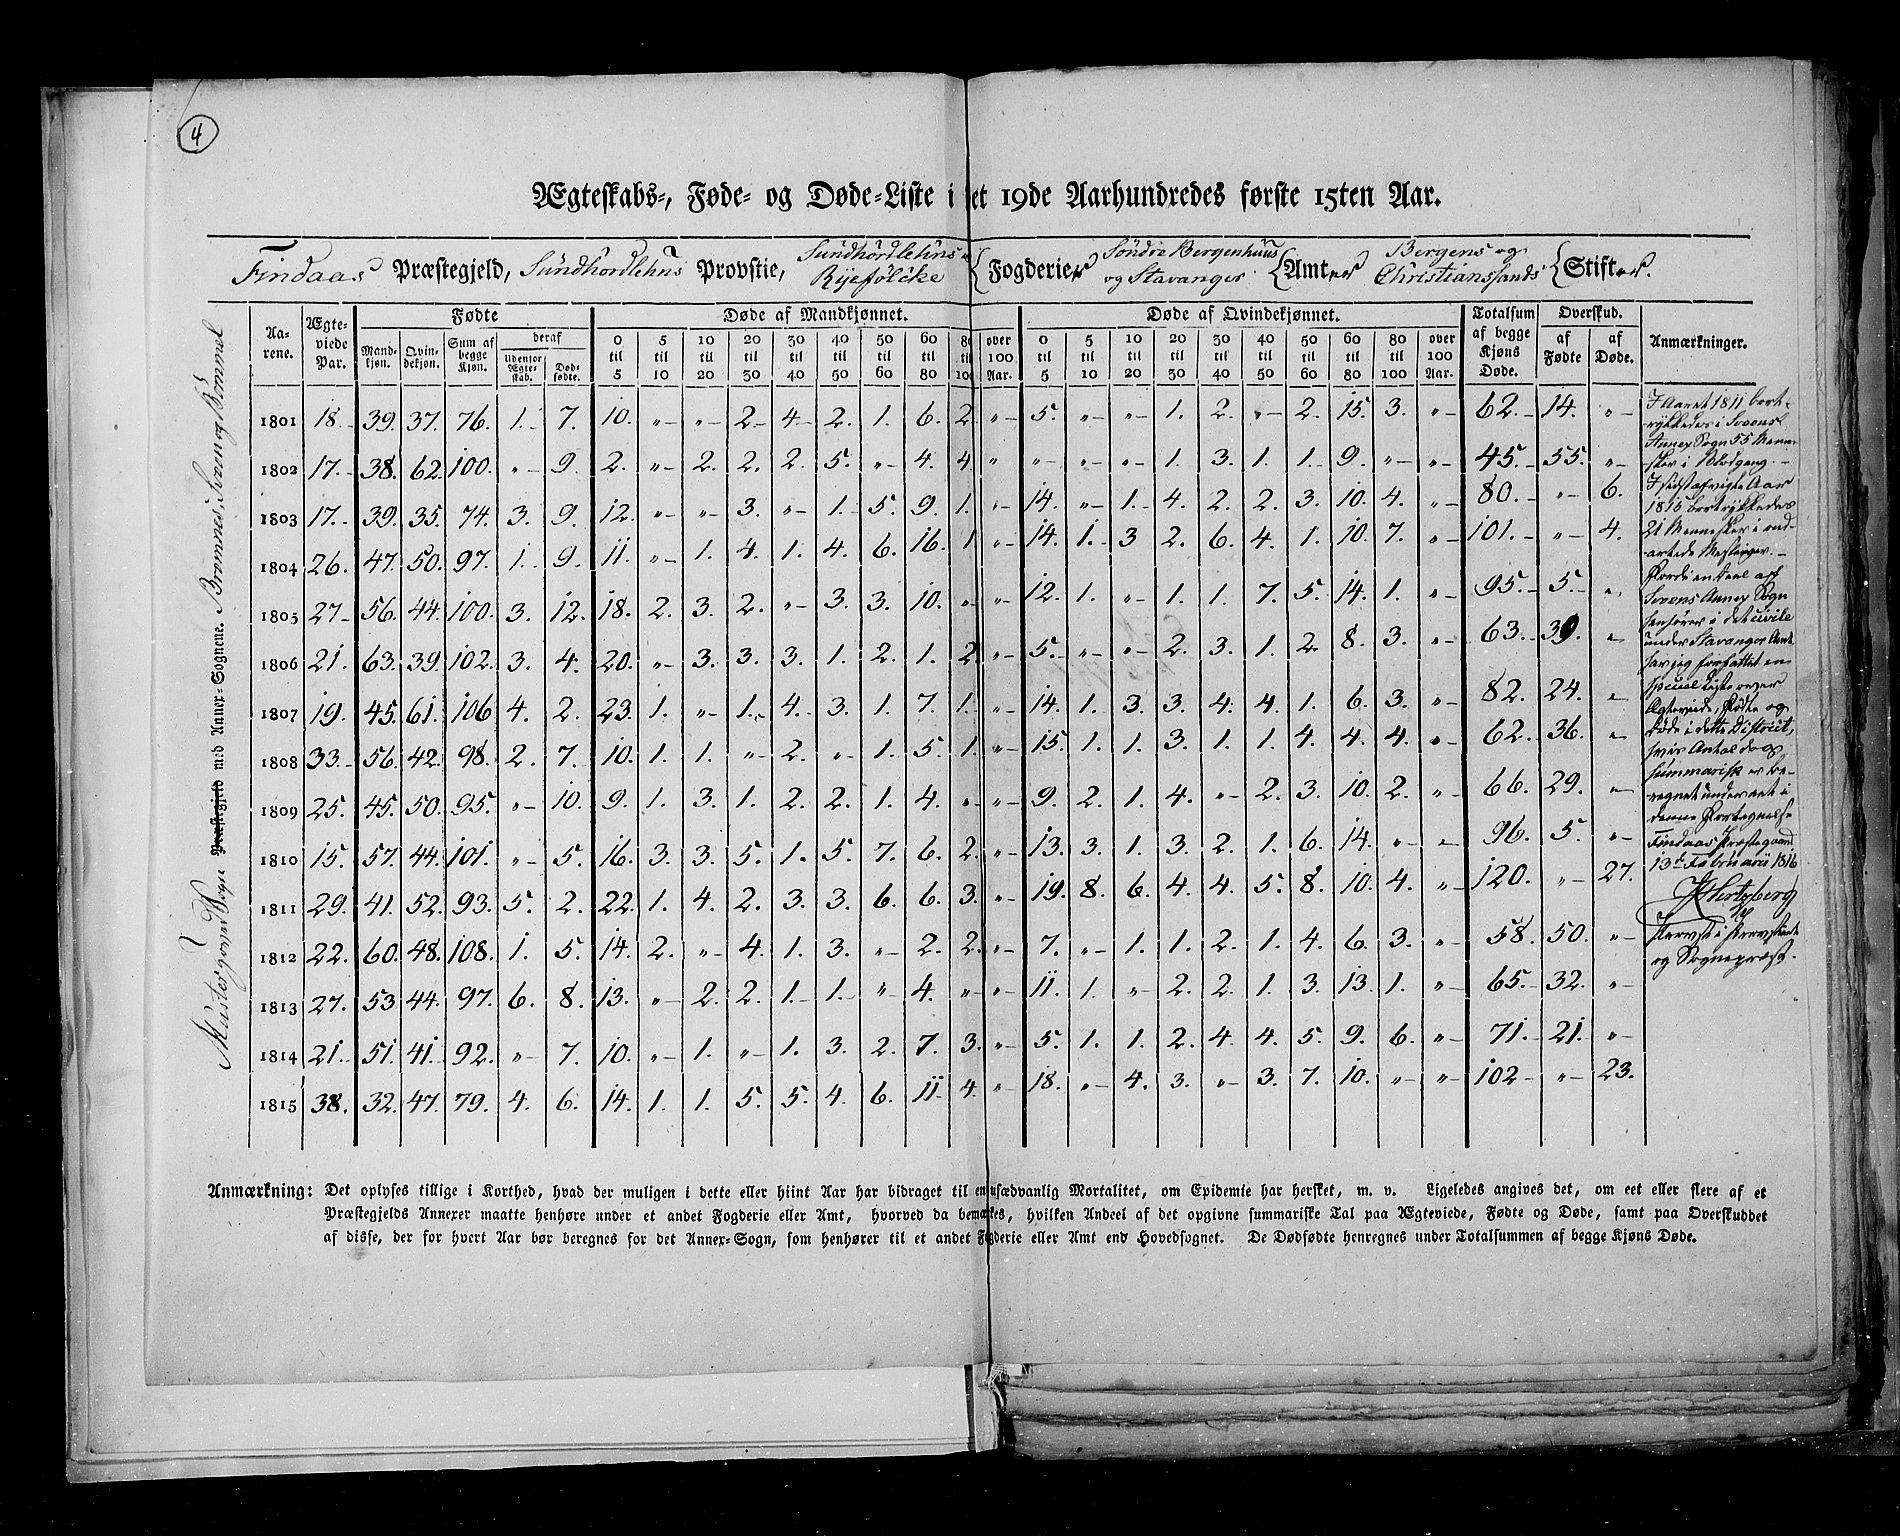 4
Ægteskabs-, Føde- og Døde-Liste i det 19de Aarhundredes første 15ten Aar.
Findaas Præstegjeld, Sundhordlehns Provstie, Sundhordlehns og Ryefölcke Fogderier Söndre Bergenhuus og Stavanger Amter Bergens og Christianssands Stifter.
Mastergovne Sogn Præstegjeld med Annex-Sognene. Bremnes, Sveen og Bömmel
Aarene. Ægteviede Par. Fødte Døde af Mandkjønnet. Døde af Qvindekjønnet. Totalsum af begge Kjøns Døde. Overskud. Anmærkninger.
Mandkjøn. Qvindekjøn. Sum af begge Kjøn. deraf Udenfor Ægteskab. Dødfødte. 0 til 5 5 til 10 10 til 20 20 til 30 30 til 40 40 til 50 50 til 60 60 til 80 80 til 100 over 100 Aar. 0 til 5 5 til 10 10 til 20 20 til 30 30 til 40 40 til 50 50 til 60 60 til 80 80 til 100 over 100 Aar. af Fødte af Døde.
1801 18. 39. 37. 76. 1. 7. 10. „ „ 2 4 2. 1. 6. 2. „ 5. „ „ 1. 2. „ 2. 15. 3. „ 62. 14. „
1802 17. 38. 62. 100. „ 9. 2. „ 2. 2. 2. 5. „ 4. 4. „ „ „ „ 1. 3. 1. 1. 9. „ „ 45. 55. „
1803 17. 39. 35. 74. 3. 9. 12. „ „ 3. „ 1. 5. 9. 1. „ 14. „ 1. 4. 2. 2. 3. 10. 4. „ 80. „ 6.
1804 26. 47. 50. 97. 1. 9. 11. „ 1. 4. 1. 4. 6. 16. 1 „ 14. 1. 3 2. 6. 4. 1. 10. 7. „ 101. „ 4.
1805 27 56. 44. 100. 3. 12. 18. 2. 3. 2. „ 3. 3. 10. „ „ 12. 1. „ 1. 1. 7. 5. 14. 1. „ 95. 5. „
1806 21. 63. 39. 102. 3. 4. 20. „ 3. 3. 3. 1. 2. 1. 2. „ 5. „ „ 2. 3. 1. 2. 8. 3. „ 63. 39. „
1807 19. 45. 61. 106 4. 2. 23. 1. „ 1. 4. 3. 1. 7. 1. „ 14. 1. 3. 3. 4. 4. 1. 6. 3. „ 82. 24. „
1808 33. 56. 42. 98. 2. 7. 10. 1. 1. „ 2. „ 1. 5. 1. „ 15. 1. 1. 3. 1. 1. 4. 4. 4. „ 62. 36. „
1809 25. 45. 50. 95. „ 10. 9. 1. 3. 1. 2. 2. 1. 4. „ „ 9. 2. 1. 4. „ 2. 3. 10. 2. „ 66. 29. „
1810 15. 57. 44. 101. „ 5. 16. 3. 3. 5. 1. 5. 7. 6. 2. „ 13. 3. 1. 3. 2. 1. 6. 14. „ „ 96. 5. „
1811 29. 41. 52. 93. 5. 2. 22. 1. 4. 2. 3. 3. 6. 6. 3. „ 19. 8. 6. 4. 4. 5. 8. 10. 4. „ 120. „ 27.
1812 22. 60. 48. 108. 1. 5. 14. 2. „ 4. 1. 3. „ 2. 2. „ 7. „ 1. 1. 2. 1. 4. 6. 3. „ 58. 50. „
1813 27. 53 44. 97. 6. 8. 13. „ 2. 2. 1. 1. „ 4. „ „ 11. 1. „ 2. 2. 1. 3. 13. 1. „ 65. 32. „
1814 21. 51. 41. 92. „ 7. 10. „ 1. „ 1. 3. 2. 7. 3. „ 5. 1. 1. 2. 4. 4. 5. 9. 6. „ 71. 21. „
1815 38. 32. 47. 79. 4. 6. 14. 1. 1. 5. 5. 4. 6. 11 4. „ 18. „ 4. 3. „ 3. 7. 10. „ „ 102 „ 23.
I Aaret 1811 bort-
rykkedes i Sveens
Annex Sogn 55 Menne-
sker i Blodgang.
I sidstafvigte Aar
1815 bortrykkedes
21 Mennesker i ond-
artede Meslinger.
Fordi en Deel af
Sveens Annex Sogn
henhører i det civile
under Stavanger Amt
har jeg forfattet en
special Liste over
Ægteviede, Fødte og
Døde i dette District,
hvis Antal dog
summarisk er be-
regnet under eet i
denne Fortegnelse
Findaas Præstegaard
13de Februarii 1816
Hertzberg
Provst i
og Sognepræst.
Anmærkning: Det oplyses tillige i Korthed, hvad der muligen i dette eller hiint Aar har bidraget til en usædvanlig Mortalitet, om Epidemie har hersket, m. v. Ligeledes angives det, om eet eller flere af et
Præstegjelds Annexer maatte henhøre under et andet Fogderie eller Amt, hvorved da bemærkes, hvilken Andeel af det opgivne summariske Tal paa Ægteviede, Fødte og Døde, samt paa Overskuddet
af disse, der for hvert Aar bør beregnes for det Annex-Sogn, som henhører til et andet Fogderie eller Amt end Hovedsognet. De Dødfødte henregnes under Totalsummen af begge Kjøns Døde.